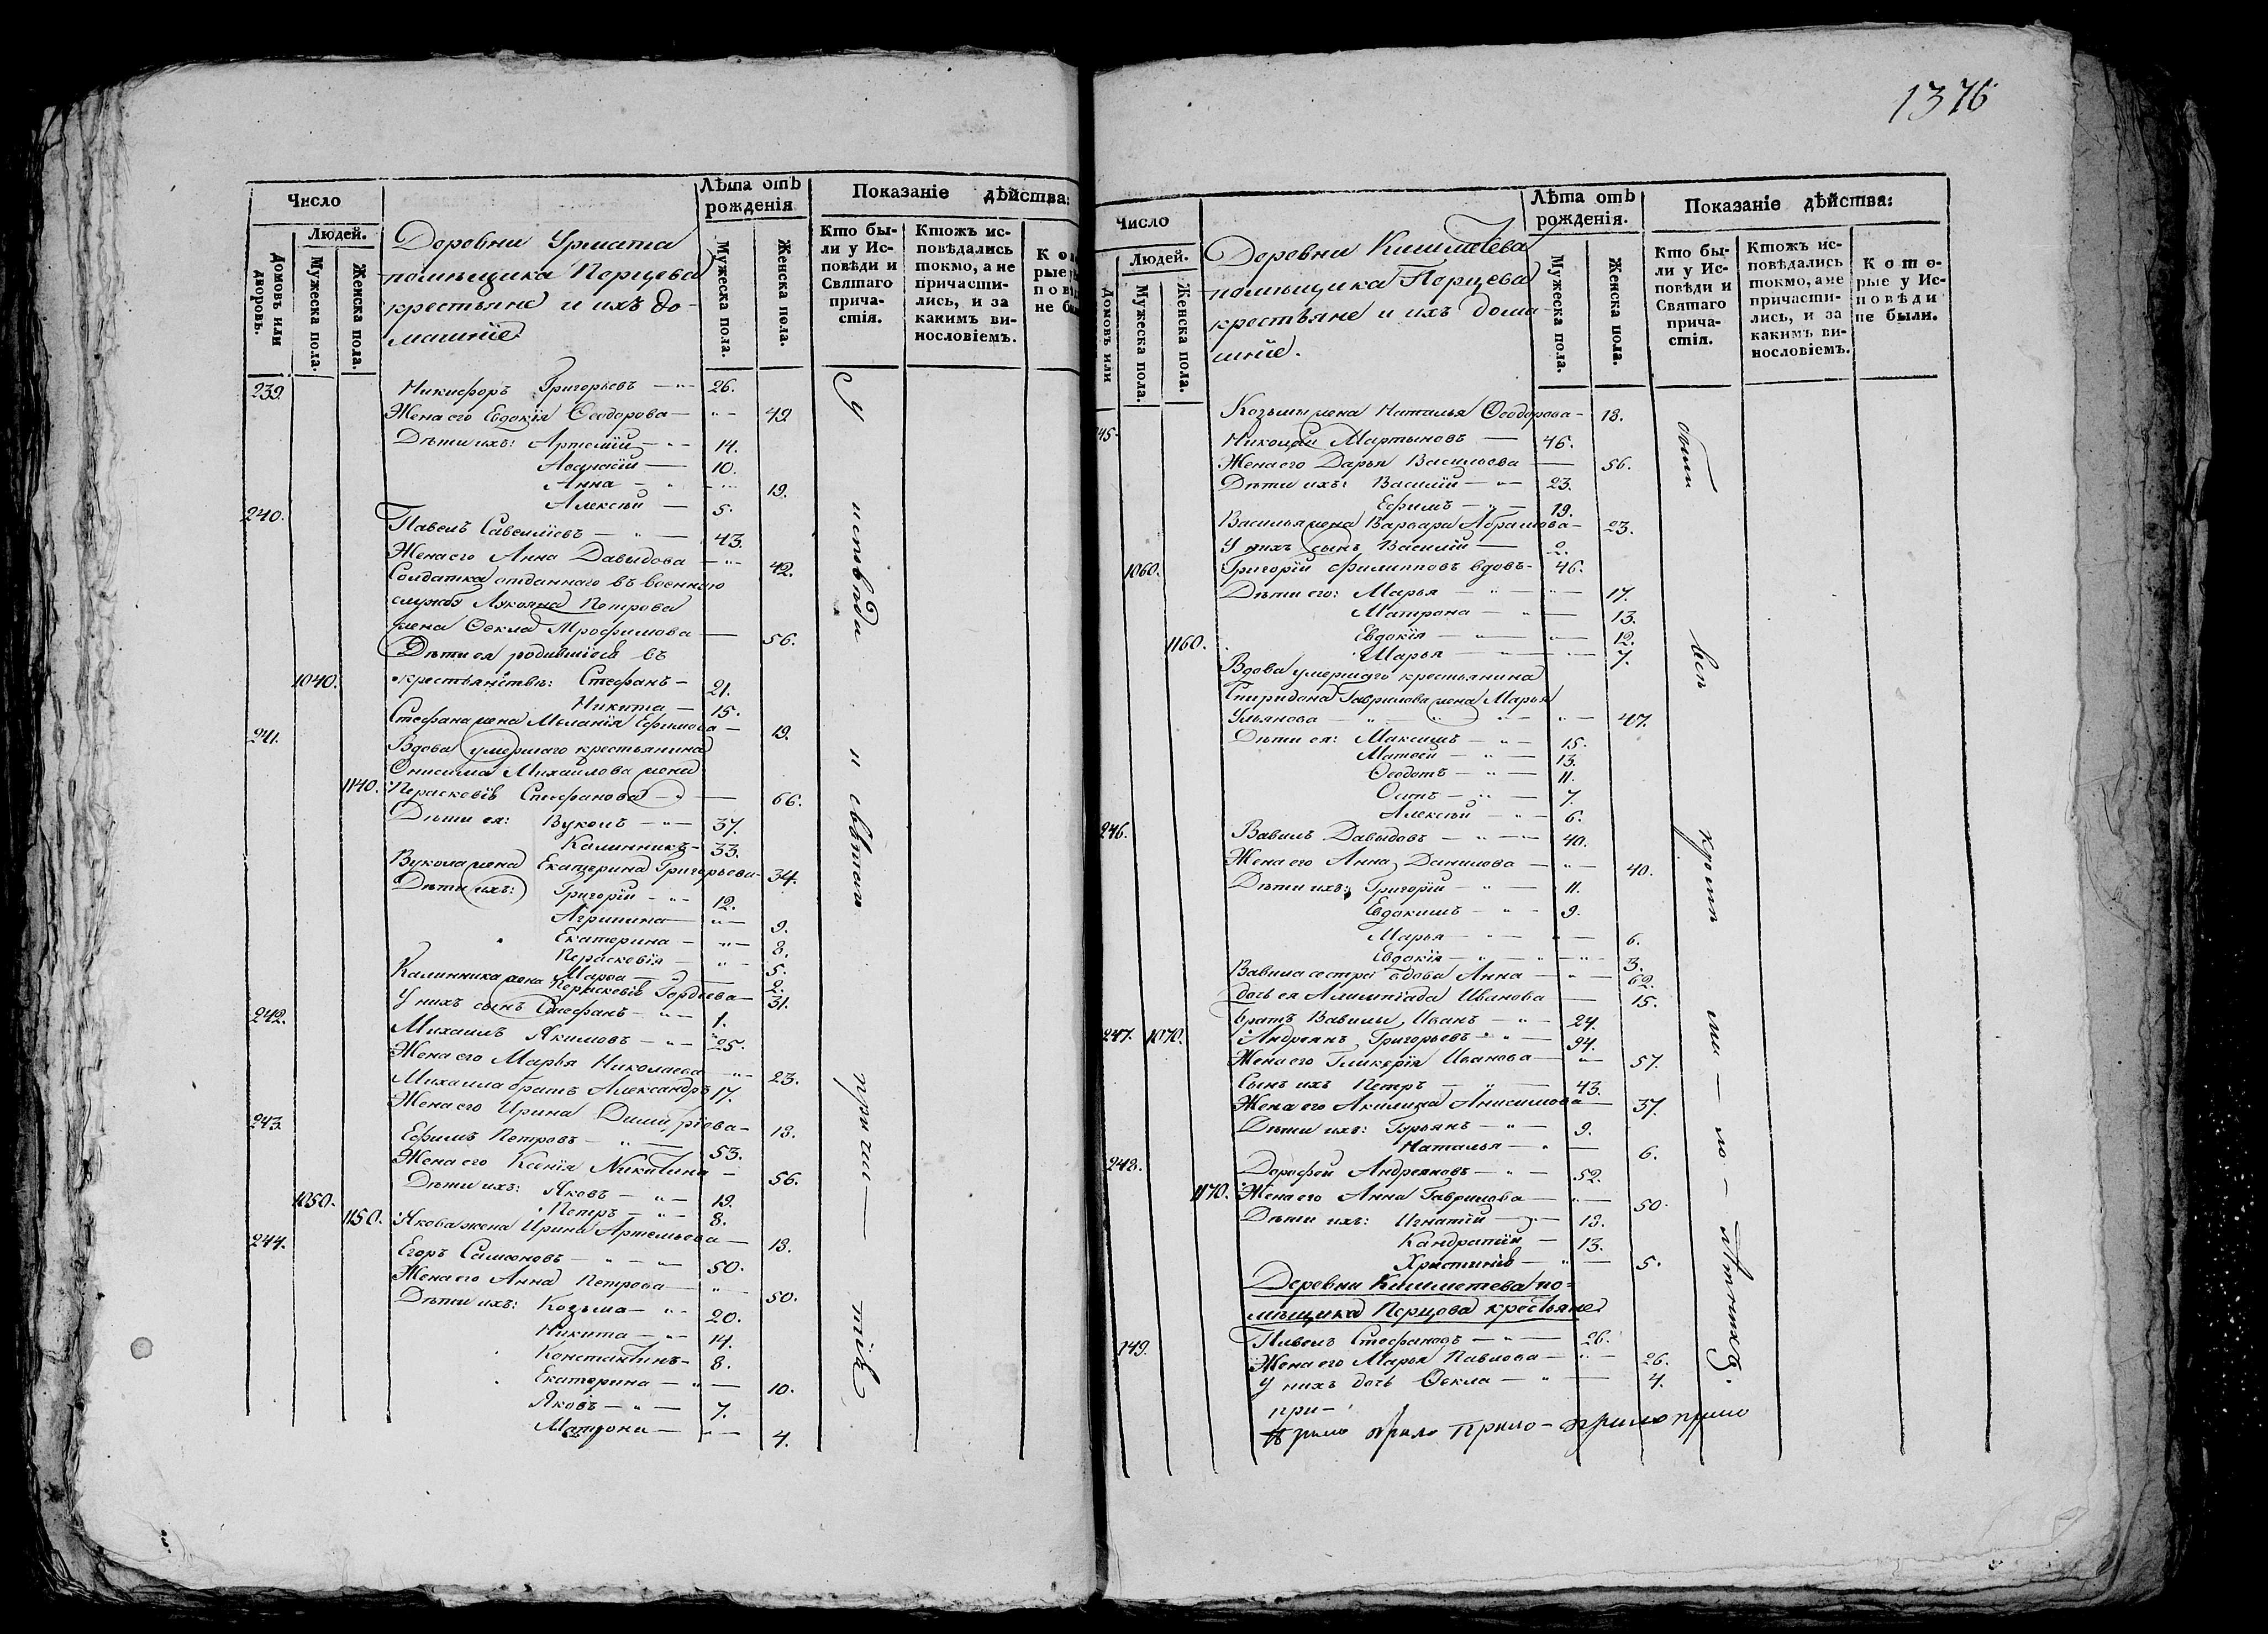 Число
Людей.
Домовъ или дворовъ.
Мужеска пола.
Женска пола.
Лѣта отъ рожденія
Мужеска пола.
Женска пола.
Показаніе дѣйства:
Кто бы-
ли у Ис-
повѣди и
Святаго
прича-
стія.
Ктожъ ис-
повѣдались
токмо, а не
причасти-
лись, и за
какимъ ви-
нословіемъ.
Деревни Урмата
помѣщика Перцова
крестьяне и ихъ до-
машніе
239. Никифоръ Григорьевъ — 26.
Жена его Евдокія Ѳеодорова — 49.
Дѣти ихъ: Артемій — 14.
Аѳанасій — 10.
Анна — 19.
Алексѣй — 5.
240. Павелъ Савеліевъ — 43.
Жена его Анна Давыдова — 42.
Солдатка отданнаго въ военную
службу Лукояна Петрова
жена Ѳекла Трофимова — 56.
Дѣти ея родившіеся въ
1040. крестьянствѣ: Стефанъ — 21.
Никита — 15.
Стефана жена Меланія Ефимова — 19.
241. Вдова умершаго крестьянина
Онисима Михайлова жена
1140. Параскевія Стефанова — 66.
Дѣти ея: Вуколъ — 37.
Калинникъ — 33.
Вукола жена Екатерина Григорьева — 34.
Дѣти ихъ: Григорій — 12.
Агрипина — 9.
Екатерина — 8.
Параскевія — 5.
Марѳа — 2.
Калинника жена Параскевія Гордѣева — 31.
У нихъ сынъ Стефанъ — 1.
242. Михаилъ Якимовъ — 25.
Жена его Марья Николаева — 23.
Михаила братъ Александръ 17.
Жена его Ирина Димитріева — 18.
243. Ефимъ Петровъ — 53.
Жена его Ксенія Никитина — 56.
Дѣти ихъ: Яковъ — 19.
1050. Петръ — 8.
1150. Якова жена Ирина Артемьева — 18.
244. Егоръ Самсоновъ — 50.
Жена его Анна Петрова — 50.
Дѣти ихъ: Козьма — 20.
Никита — 14.
Константинъ — 8.
Екатерина — 10.
Яковъ — 7.
Матрона — 4.
У исповѣди и святаго прича — стія
1376
Число
Людей.
Домовъ или
Мужеска пола.
Женска пола.
Лѣта отъ рожденія.
Мужеска пола.
Женска пола.
Показаніе дѣйства:
Кто бы-
ли у Ис-
повѣди и
Святаго
прича-
стія.
Ктожъ ис-
повѣдались
токмо, а не
причасти-
лись, и за
какимъ ви-
нословіемъ.
Кото-
рые у Ис-
повѣди
не были.
Деревни
помѣщика Перцова
крестьяне и ихъ дома-
шніе.
Козьмы жена Наталья Ѳеодорова — 18.
45. Николай Мартыновъ — 46.
Жена его Дарья Васильева — 56.
Дѣти ихъ: Василій — 23.
Ефимъ — 19.
Василья жена Варвара Абрамова — 23.
У нихъ сынъ Василій — 2.
1060. Григорій Филипповъ вдовъ — 46.
Дѣти его: Марья — 17.
Матрона — 13.
1160. Евдокія — 12.
Марья — 7.
Вдова умершаго крестьянина
Спиридона Гаврилова жена Марья
Ульянова — 47.
Дѣти ея: Максимъ — 15.
Матвѣй — 13.
Ѳеодотъ — 11.
Осипъ — 7.
Алексѣй — 6.
246. Вавилъ Давыдовъ — 40.
Жена его Анна Данилова — 40.
Дѣти ихъ: Григорій — 11.
Евдокимъ — 9.
Марья — 6.
Евдокія — 3.
Вавила сестра вдова Анна — 62.
дочь ея Алимпіада Иванова — 15.
братъ Вавилы Иванъ — 24.
247. 1070. Андреянъ Григорьевъ — 94.
Жена его Гликерія Иванова — 57.
Сынъ ихъ Петръ — 43.
Жена его Акилина Анисимова — 37.
Дѣти ихъ: Гурьянъ — 9.
Наталья — 6.
248. Дорофей Андреяновъ — 52.
1170. Жена его Анна Гаврилова — 50.
Дѣти ихъ: Игнатій — 18.
Кандратій — 13.
Христинія — 5.
Деревни Кишметева по-
мѣщика Перцова крестьяне
149. Павелъ Стефановъ — 26.
Жена его Марья Павлова — 26.
У нихъ дочь Ѳекла — 4.
при-
были всѣ кромѣ ма — лѣтнихъ.